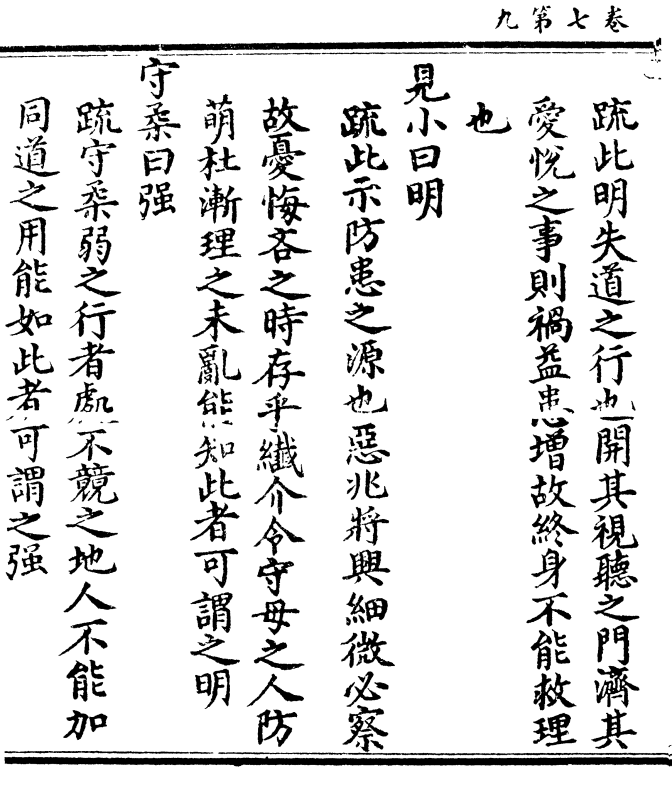 卷七第九
疏此明失道之行也開其視聽之門濟其
愛悅之事則禍益患增故終身不能救理
也
見小曰明
疏此示防患之源也惡兆將興細微必察
故憂悔吝之時存乎纖介令守母之人防
萌杜漸理之未亂能知此者可謂之明
守柔曰强
疏守柔弱之行者處不競之地人不能加
同道之用能如此者可謂之强